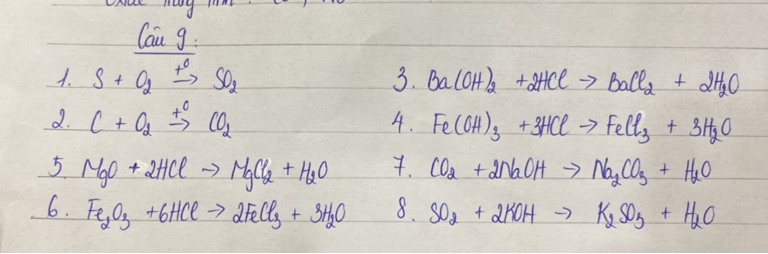 Câu 9:
1. S + O₂ →(t⁰) SO₂
3. Ba(OH)₂ + 2HCl → BaCl₂ + 2H₂O
2. C + O₂ →(t⁰) CO₂
4. Fe(OH)₃ + 3HCl → FeCl₃ + 3H₂O
5. MgO + 2HCl → MgCl₂ + H₂O
7. CO₂ + 2NaOH → Na₂CO₃ + H₂O
6. Fe₂O₃ + 6HCl → 2FeCl₃ + 3H₂O
8. SO₂ + 2KOH → K₂SO₃ + H₂O